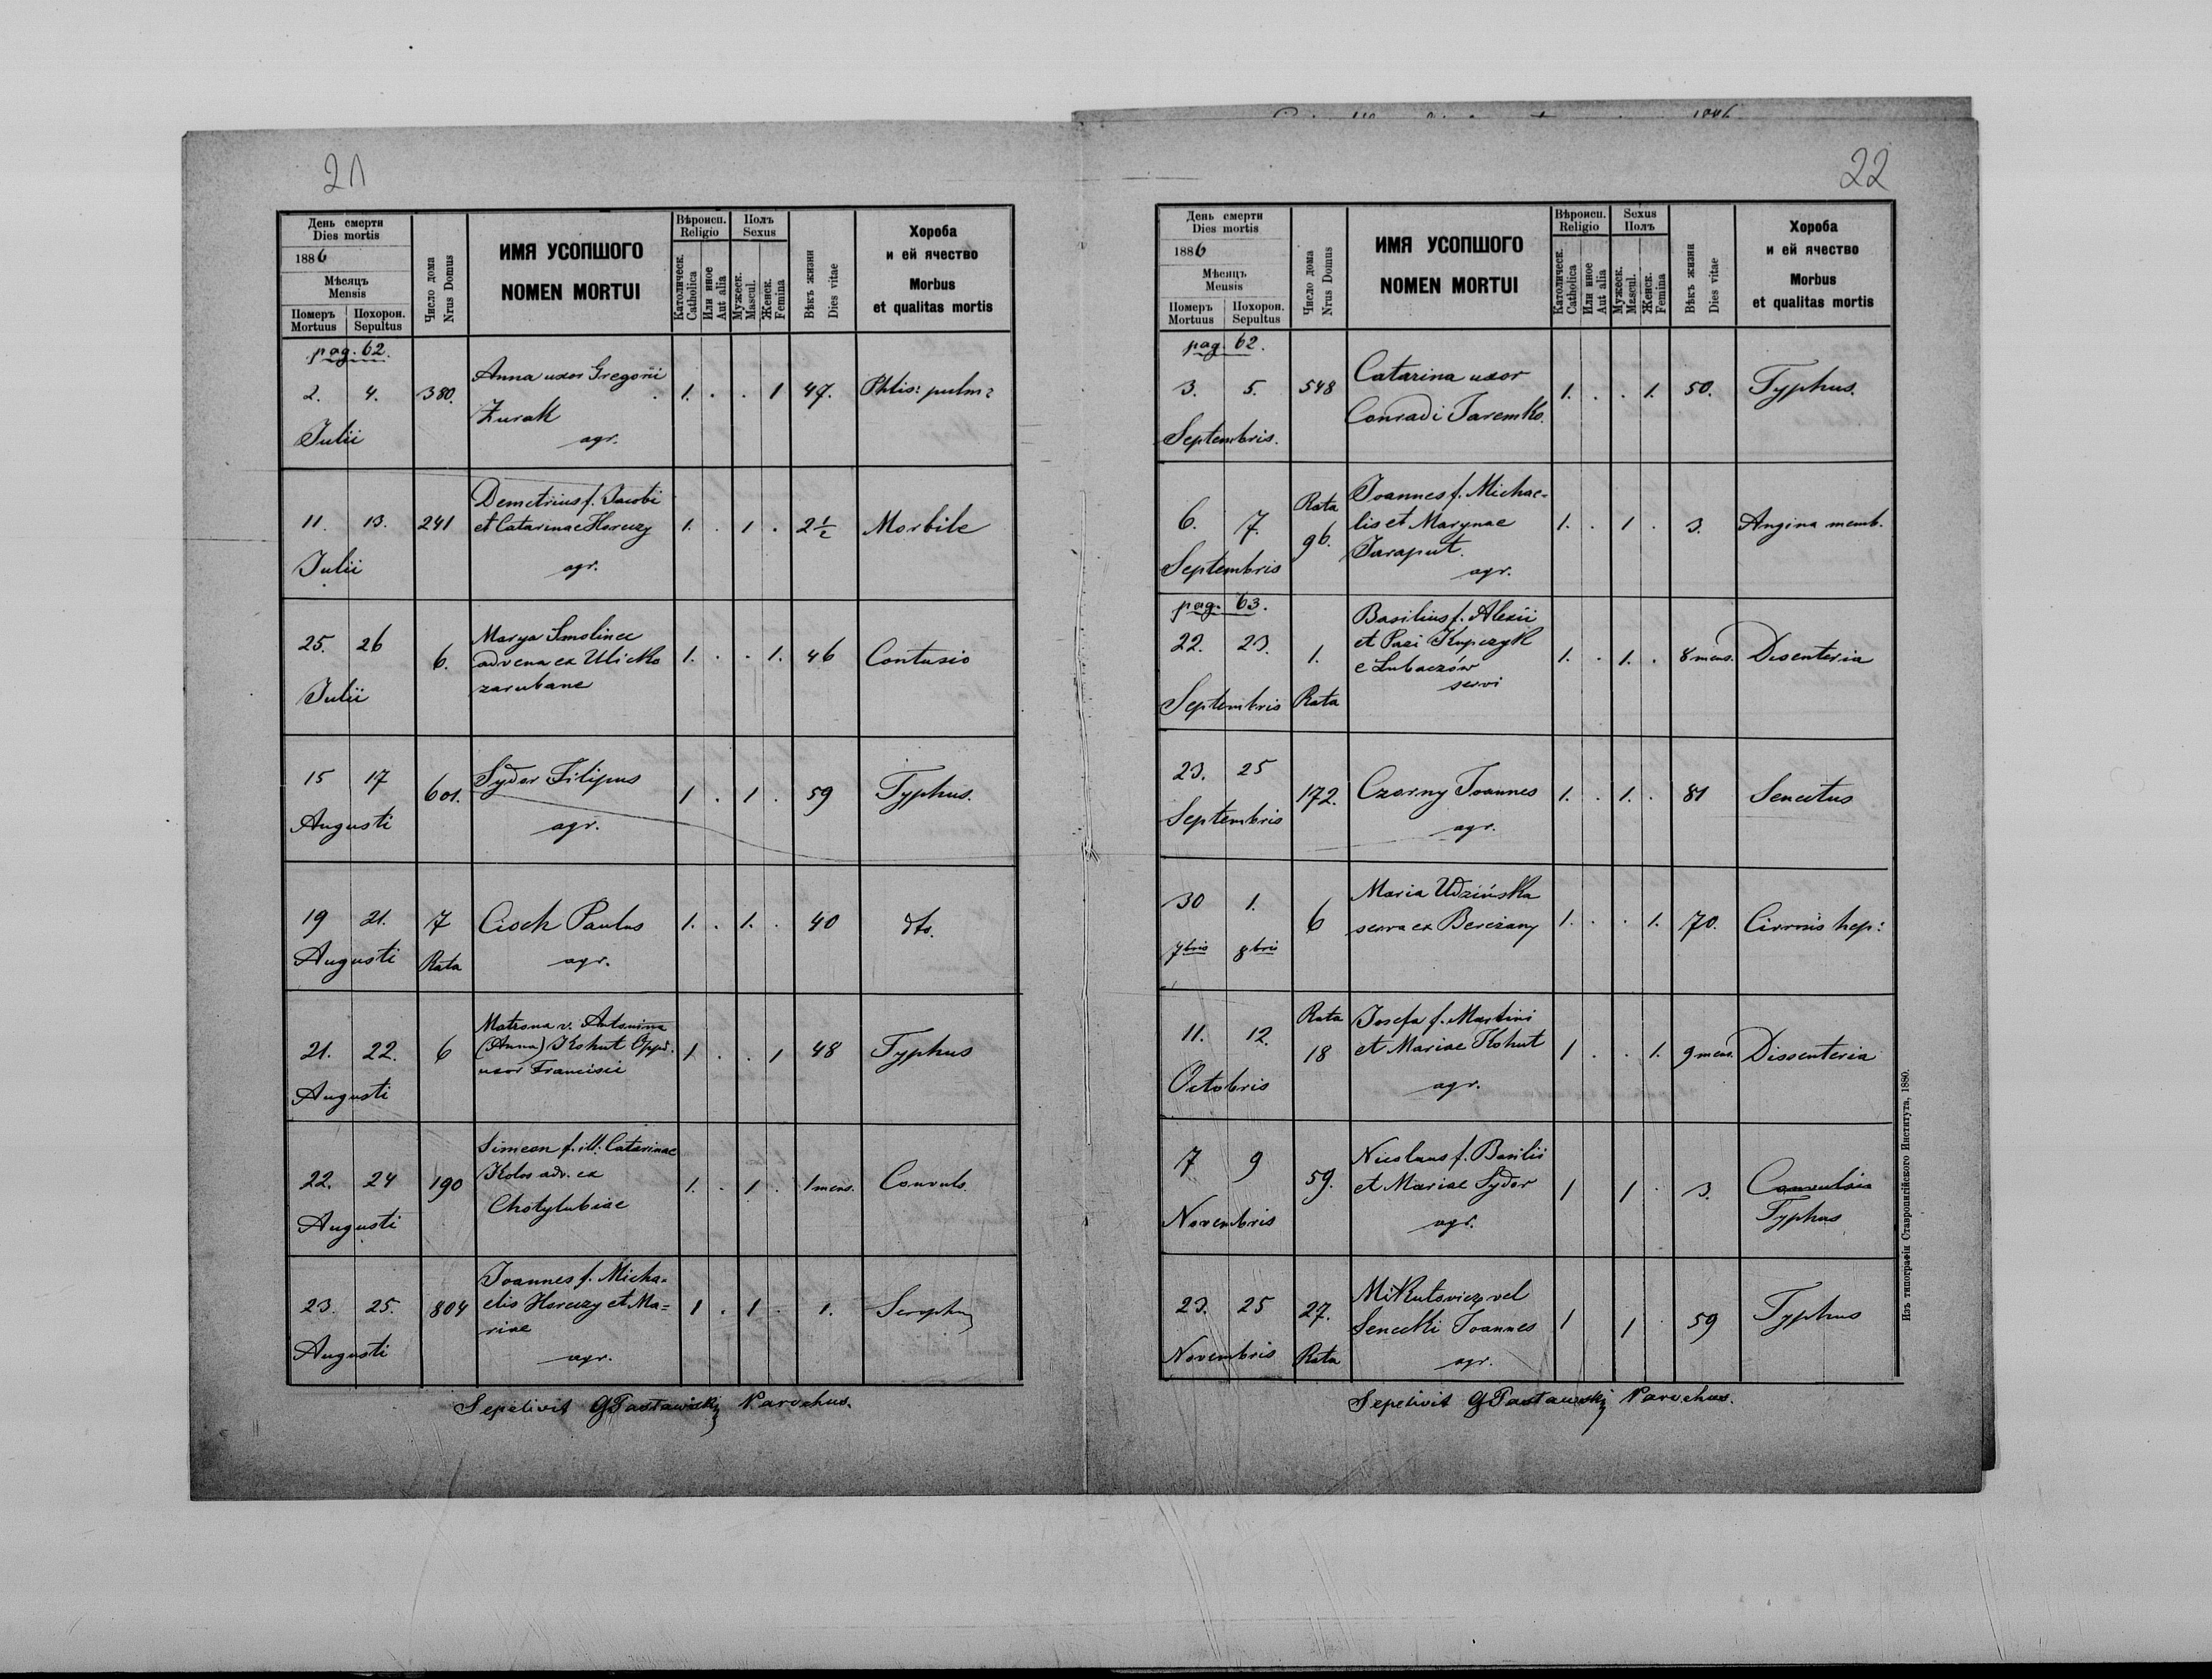 21
День смерти
Dies mortis
1886
Мѣсяцъ
Mensis
Померъ
Mortuus
Похорон.
Sepultus
Число дома
Nrus Domus
ИМЯ УСОПШОГО
NOMEN MORTUI
Вѣроисп.
Religio
Католическ.
Catholica
Или иное
Aut alia
Полъ
Sexus
Мужеск.
Mascul.
Женск.
Femina
Вѣкъ жизни
Dies vitae
Хороба
и ей ячество
Morbus
et qualitas mortis
pag. 62.
2. 4. 380. Anna uxor Gregorii 1. . . 1 47. Phtis: pulm:
Żurak
Julii agr.
Demetrius f. Jacobi
11. 13. 241 et Catarinae Horuzy 1. . 1 . 2 1/2 Morbile
Julii agr.
25. 26 6. Marya Smolinec 1. . . 1. 46 Contusio
advena ex Ulicko
Julii zarubane
15 17 601. Sydor Filipus 1 . 1 . 59 Typhus.
Augusti agr.
19 21. 7 Cioch Paulus 1. . 1. . 40 dto.
Augusti Rata agr.
Matrona v. Antonina
21. 22. 6 (Anna) Kohut 1 . . 1 48 Typhus
uxor Francisci
Augusti
Simeon f. ill: Catarinae
22. 24 190 Kolos adv. ex 1. . 1 . 1 mens. Convuls.
Chotylubiae
Augusti
Joannes f. Micha-
23. 25. 804 elis Horuzy et Ma- 1 . 1 . 1.
riae
Augusti agr.
Sepelivit Parochus.
22
День смерти
Dies mortis
1886
Мѣсяцъ
Mensis
Померъ
Mortuus
Похорон.
Sepultus
Число дома
Nrus Domus
ИМЯ УСОПШОГО
NOMEN MORTUI
Вѣроисп.
Religio
Католическ.
Catholica
Или иное
Aut alia
Sexus
Полъ
Мужеск.
Mascul.
Женск.
Femina
Вѣкъ жизни
Dies vitae
Хороба
и ей ячество
Morbus
et qualitas mortis
pag. 62.
3. 5. 548 Catarina uxor 1. . . 1. 50. Typhus.
Conradi Jaremko.
Septembris.
Rata Joannes f. Michae-
6. 7. 96. lis et Marynae 1. . 1 . 3. Angina memb.
Taraput.
Septembris agr.
pag. 63.
Basilius f. Alexii
22. 23. 1. et Pazi Kupczyk 1. . 1. . 8 mens. Disenteria
e Lubaczów
servi
Septembris Rata
23. 25 172. Czorny Joannes 1. . 1. . 81 Senectus
Septembris agr.
30 1. 6 Maria Udzińska 1. . . 1. 70. Cirrosis hep:
serva ex Bereżany
7bris 8bris
Rata Josefa f. Martini
11. 12. 18 et Mariae Kohut 1 . . 1. 9 mens. Dissenteria
Octobris agr.
7 9 59. Nicolaus f. Basilii 1 1 . 3. Convulsia
et Mariae Sydor Typhus
Novembris agr.
23. 25 27. Mikulowicz vel 1 1 59 Typhus
Senecki Joannes
Novembris Rata agr.
Sepelivit Parochus.
Изъ типографіи Ставропигійского Института, 1880.